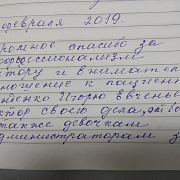 февраля 2019.
ромное спасибо за
рофессионализм
ктору и внимател
ношение к пациен
Игорю
ктор своего дела,
также девочкам
администраторам з